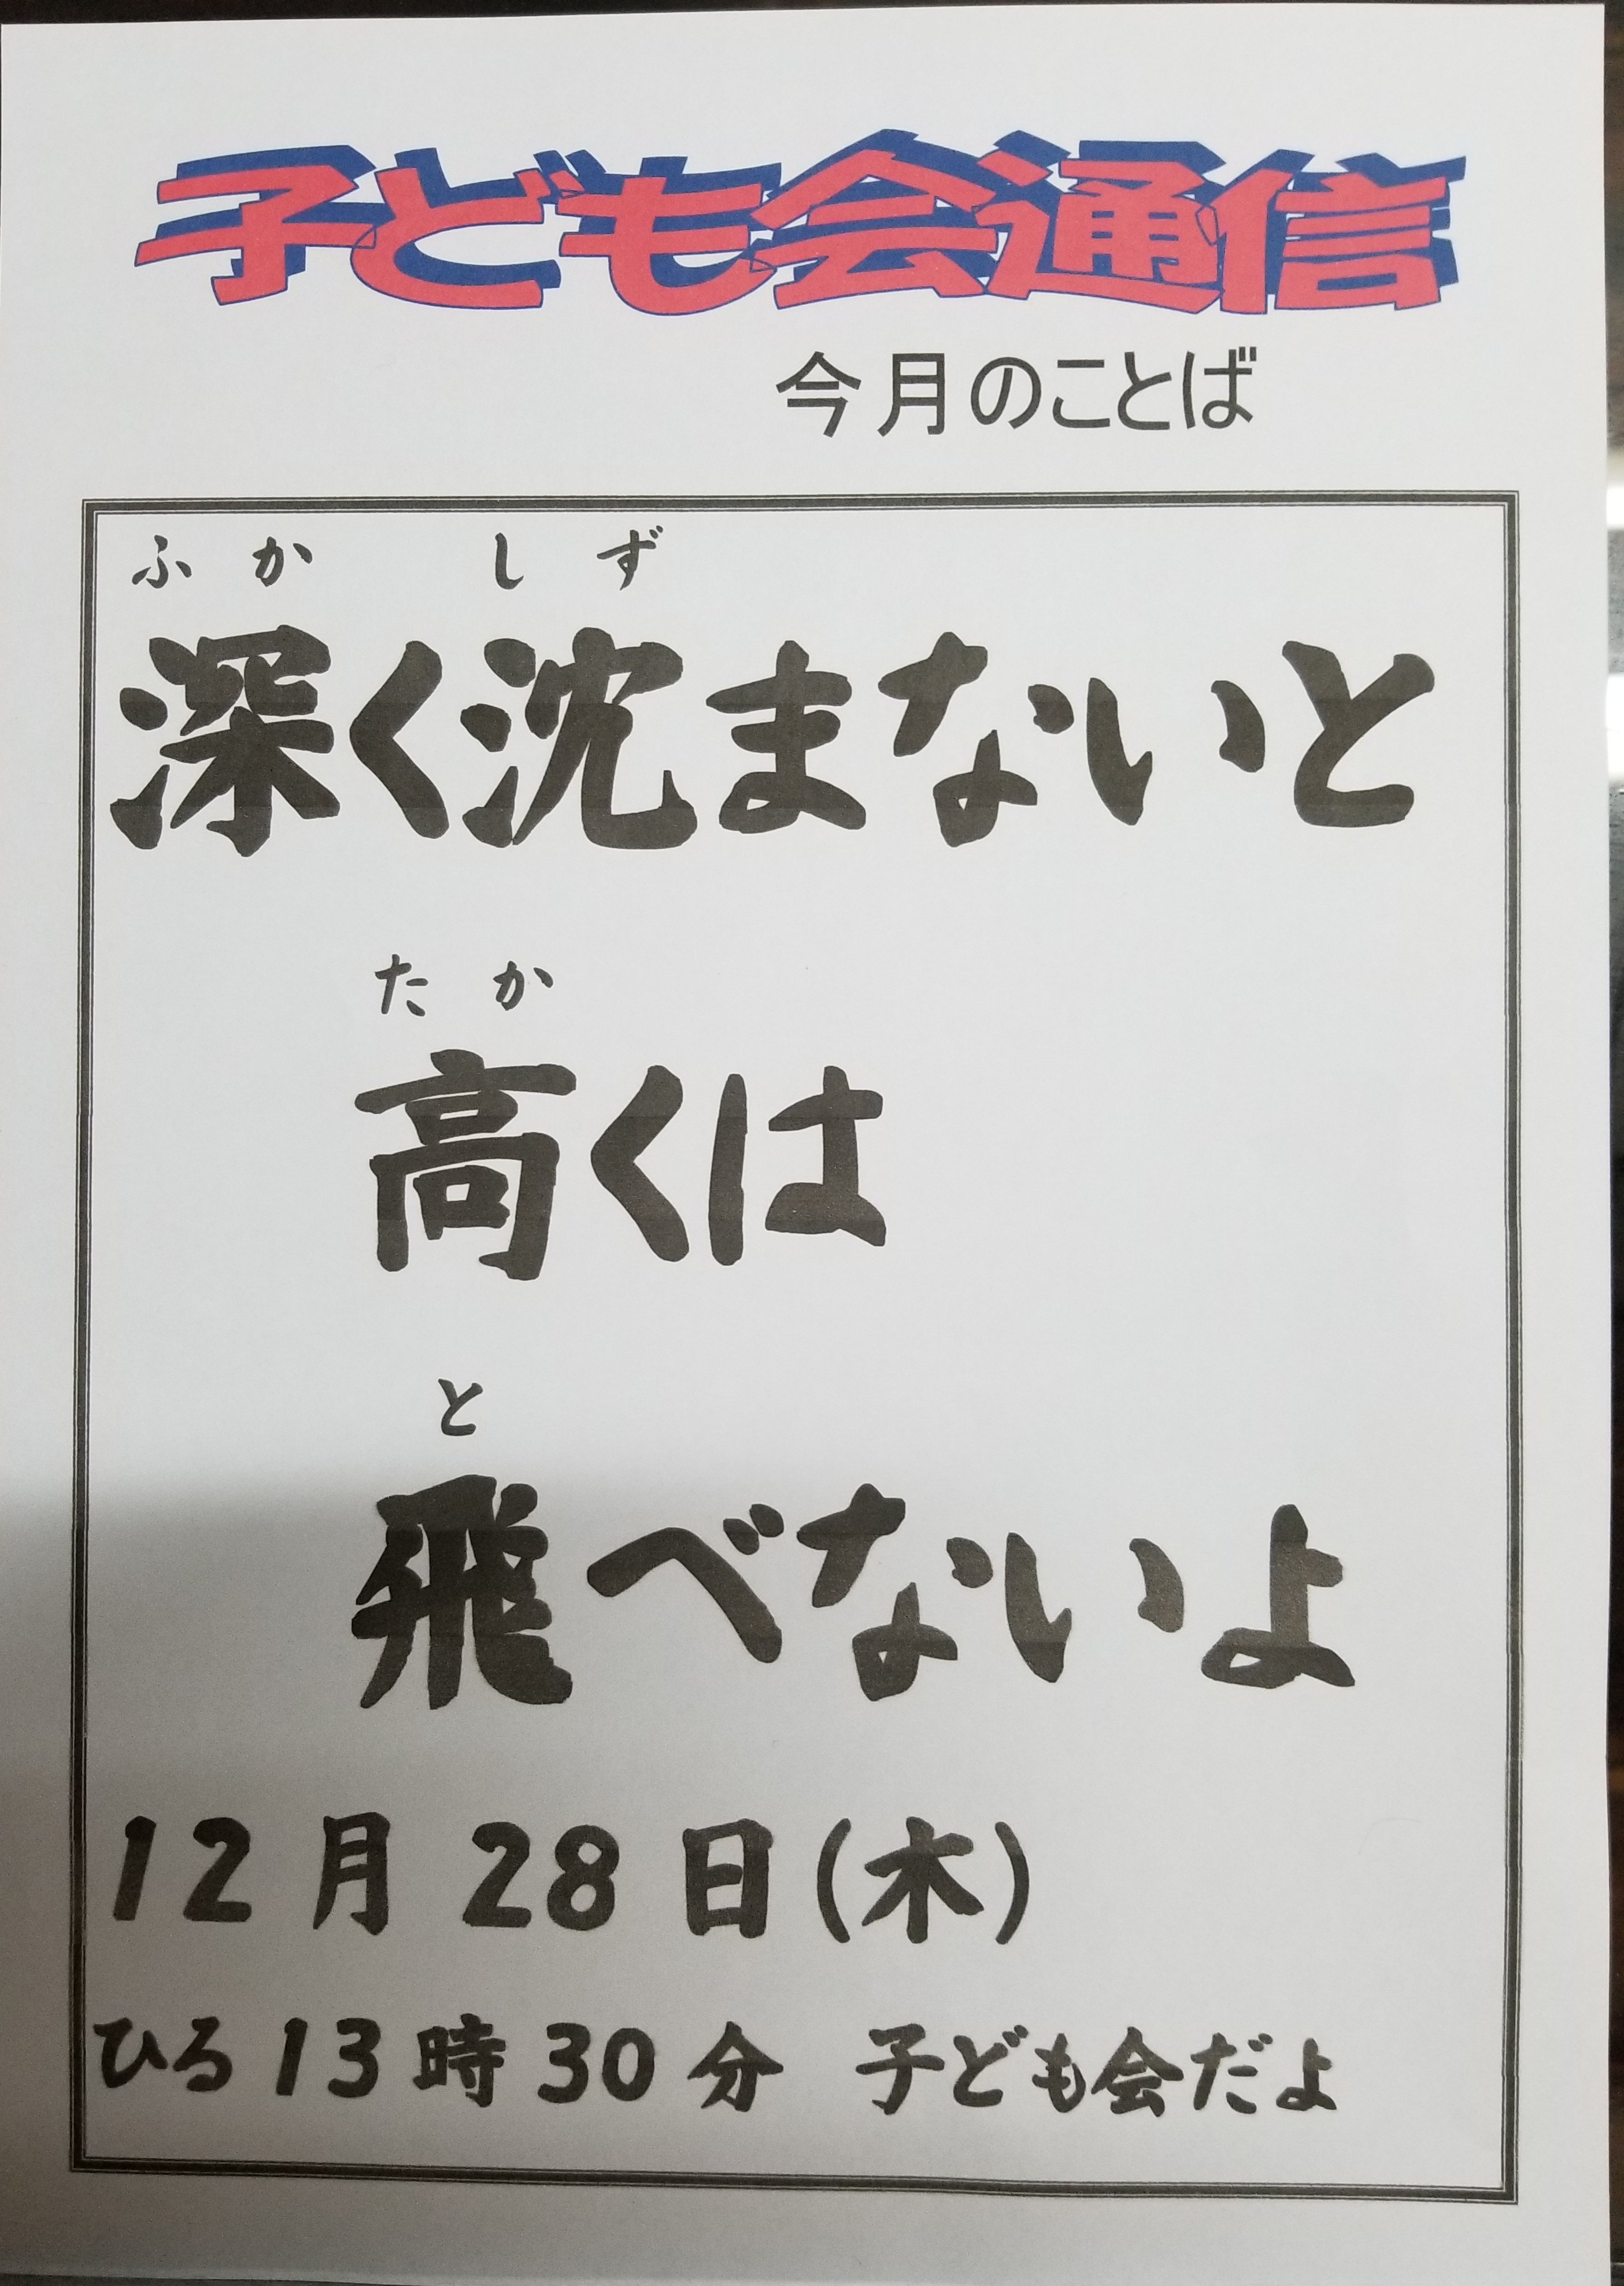 子ども会通信
今月のことば
ふか しず
深く沈まないと
たか
高くは
と
飛べないよ
12月28日(木)
ひる13時30分 子ども会だよ